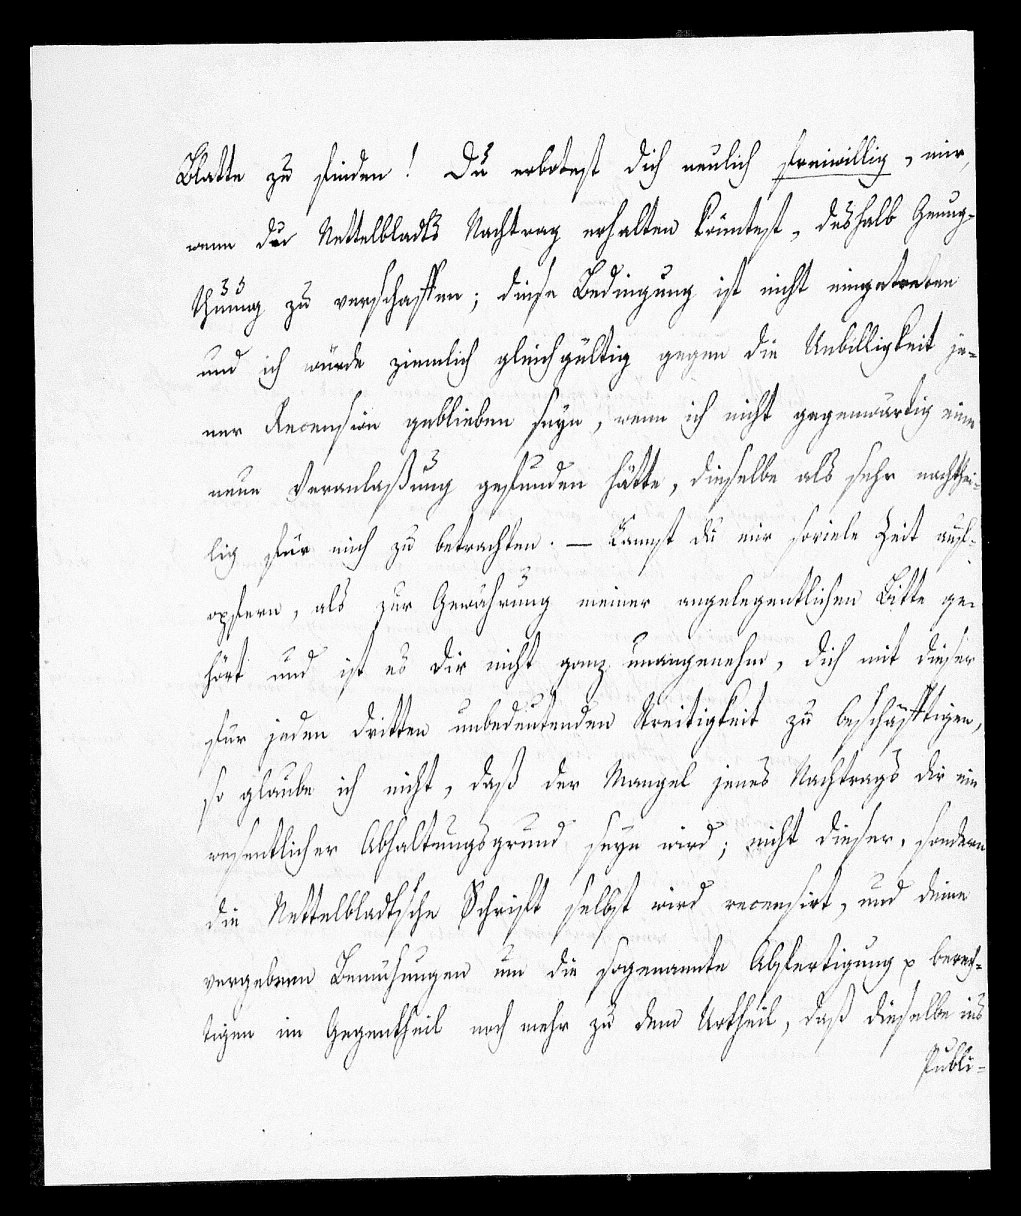 Blatte zu finden! Du erbotest dich neulich freiwillig, mir,
wenn du Nettelbladts Nachtrag erhalten könntest, deshalb Genug-
thuung zu verschaffen; diese Bedingung ist nicht eingetreten
und ich würde ziemlich gleichgültig gegen die Unbilligkeit je-
ner Recension geblieben seyn, wenn ich nicht gegenwärtig eine
neue Veranlaßung gefunden hätte, dieselbe als sehr nachthei-
lig für mich zu betrachten. — Kannst du mir soviele Zeit auf-
opfern, als zur Gewährung meiner angelegentlichen Bitte ge-
hört und ist es dir nicht ganz unangenehm, dich mit dieser
für jeden dritten unbedeutenden Streitigkeit zu beschäfftigen,
so glaube ich nicht, daß der Mangel jenes Nachtrags dir ein
wesentlicher Abhaltungsgrund seyn wird; nicht dieser, sondern
die Nettelbladtsche Schrift selbst wird recensirt, und deine
vergebnen Bemühungen um die sogenannte Abfertigung berech-
tigen im Gegentheil noch mehr zu dem Urtheil, daß dieselbe ins
Publi-